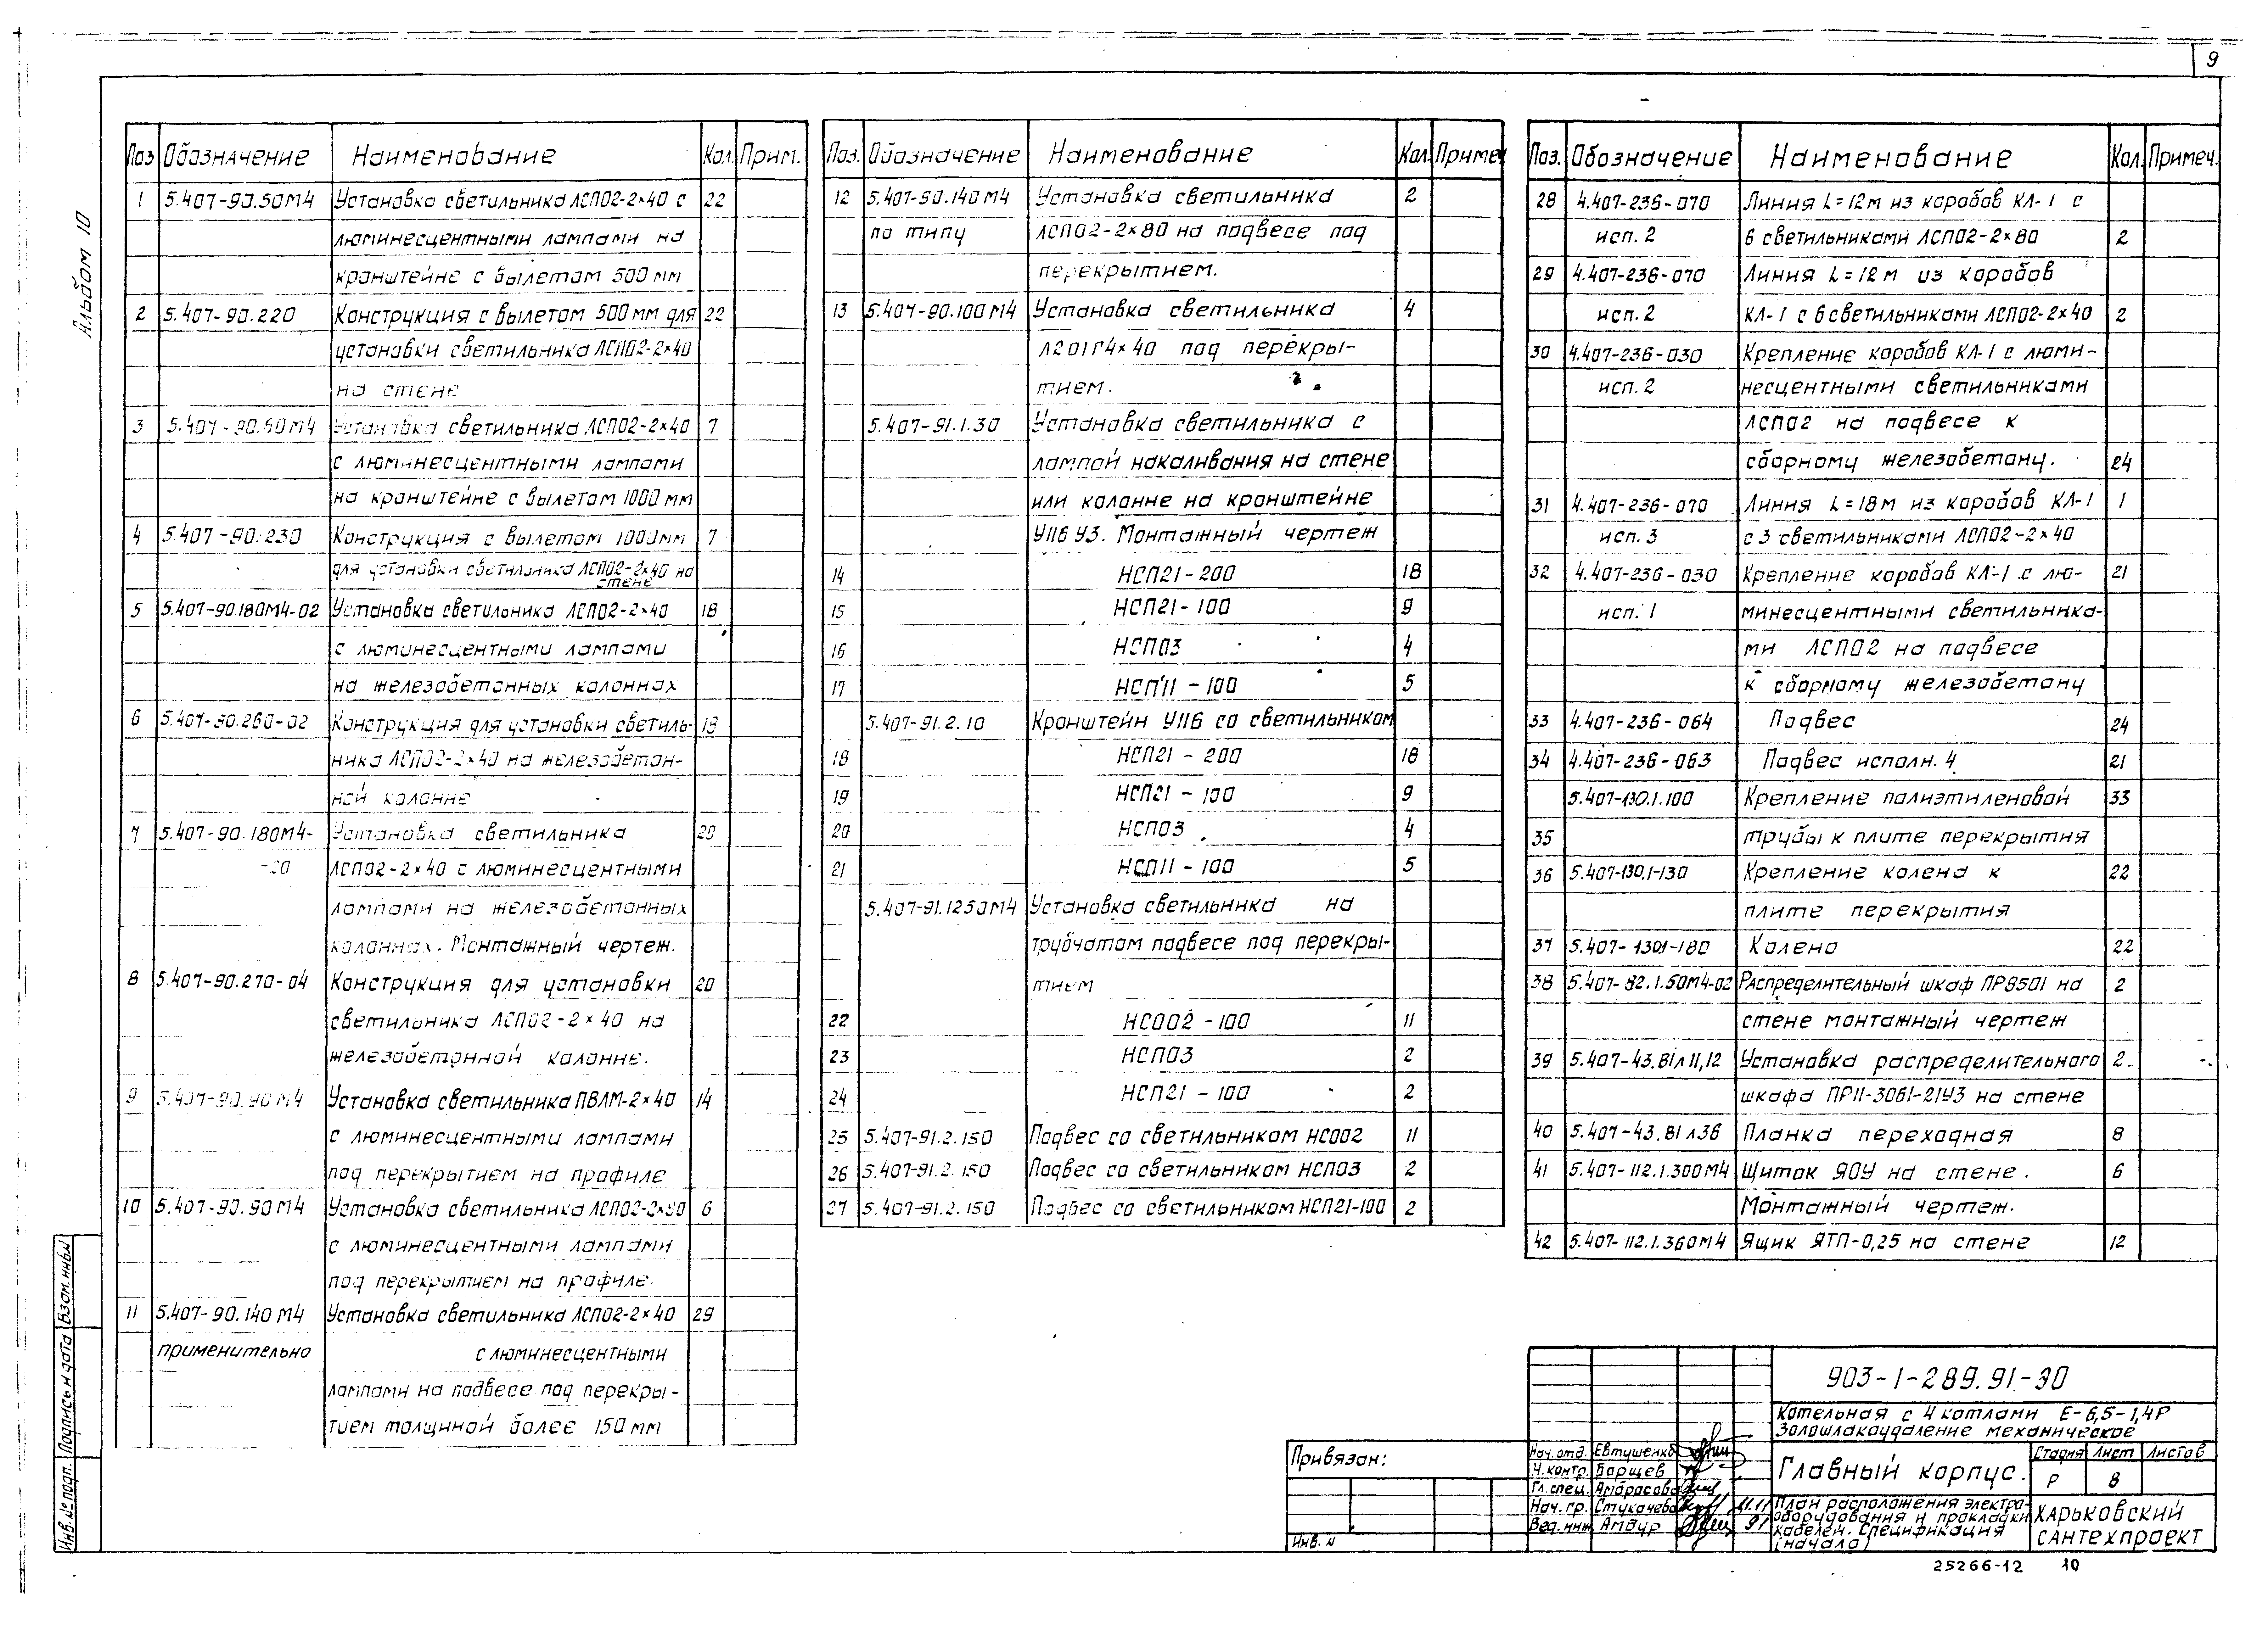 9
Альбом 10
Поз Обозначение Наименование Кол. Прим.
1 5.407-90.50М4 Установка светильника ЛСП02-2×40 с 22
люминесцентными лампами на
кронштейне с вылетом 500 мм
2 5.407-90.220 Конструкция с вылетом 500 мм для 22
установки светильника ЛСП02-2×40
на стене
3 5.407-90.60М4 Установка светильника ЛСП02-2×40 7
с люминесцентными лампами
на кронштейне с вылетом 1000 мм
4 5.407-90.230 Конструкция с вылетом 1000мм 7
для установки светильника ЛСП02-2×40 на
стене
5 5.407-90.180М4-02 Установка светильника ЛСП02-2×40 18
с люминесцентными лампами
на железобетонных колоннах
6 5.407-90.260-02 Конструкция для установки светиль-
ника ЛСП02-2×40 на железобетон-
ной колонне
7 5.407-90.180М4- Установка светильника 20
ЛСП02-2×40 с люминесцентными
лампами на железобетонных
колоннах. Монтажный чертеж.
8 5.407-90.270-04 Конструкция для установки 20
светильника ЛСП02-2×40 на
железобетонной колонне.
9 5.407-90.90М4 Установка светильника ПВЛМ-2×40 14
с люминесцентными лампами
под перекрытием на профиле
10 5.407-90.90М4 Установка светильника ЛСП02-2×80 6
с люминесцентными лампами
под перекрытием на профиле.
11 5.407-90.140М4 Установка светильника ЛСП02-2×40 29
применительно с люминесцентными
лампами на подвесе под перекры-
тием толщиной более 150 мм
Поз. Обозначение Наименование Кол. Примеч
12 5.407-90.140М4 Установка светильника 2
по типу ЛСП02-2×80 на подвесе под
перекрытием.
13 5.407-90.100М4 Установка светильника 4
Л201Г4×40 под перекры-
тием.
5.407-91.1.30 Установка светильника с
лампой накаливания на стене
или колонне на кронштейне
У116 У3. Монтажный чертеж
14 НСП21-200 18
15 НСП21-100 9
16 НСП03 4
17 НСП11-100 5
5.407-91.2.10 Кронштейн У116 со светильником
18 НСП21-200 18
19 НСП21-100 9
20 НСП03 4
21 НСП11-100 5
5.407-91.1250М4 Установка светильника на
трубчатом подвесе под перекры-
тием
22 НСО02-100 11
23 НСП03 2
24 НСП21-100 2
25 5.407-91.2.150 Подвес со светильником НСО02 11
26 5.407-91.2.150 Подвес со светильником НСП03 2
27 5.407-91.2.150 Подвес со светильником НСП21-100 2
Поз. Обозначение Наименование Кол. Примеч.
28 4.407-236-070 Линия L=12м из коробов КЛ-1 с
исп. 2 6 светильниками ЛСП02-2×80 2
29 4.407-236-070 Линия L=12м из коробов
исп. 2 КЛ-1 с 6 светильниками ЛСП02-2×40 2
30 4.407-236-030 Крепление коробов КЛ-1 с люми-
исп. 2 несцентными светильниками
ЛСП02 на подвесе к
сборному железобетону. 24
31 4.407-236-070 Линия L=18м из коробов КЛ-1 1
исп. 3 с 3 светильниками ЛСП02-2×40
32 4.407-236-030 Крепление коробов КЛ-1 с лю- 21
исп. 1 минесцентными светильника-
ми ЛСП02 на подвесе
к сборному железобетону
33 4.407-236-064 Подвес 24
34 4.407-236-063 Подвес исполн. 4 21
5.407-130.1.100 Крепление полиэтиленовой 33
35 трубы к плите перекрытия
36 5.407-130.1-130 Крепление колена к 22
плите перекрытия
37 5.407-130.1-180 Колено 22
38 5.407-92.1.50М4-02 Распределительный шкаф ПР8501 на 2
стене монтажный чертеж
39 5.407-43.В1л11,12 Установка распределительного 2
шкафа ПР11-3061-21У3 на стене
40 5.407-43.В1 л36 Планка переходная 8
41 5.407-112.1.300М4 Щиток ЯОУ на стене. 6
Монтажный чертеж.
42 5.407-112.1.360М4 Ящик ЯТП-0,25 на стене 12
Взам.инв№
Подпись и дата
Инв.№ подл.
Привязан:
Инв. №
903-1-289.91-ЭО
Котельная с 4 котлами Е-6,5-1,4Р
Золошлакоудаление механическое
Нач. отд. Евтушенко
Н.контр. Борщев
Гл.спец. Амбросова
Нач. гр. Стукачева 11.11
Вед.инж. Амдур 91
Главный корпус.
Стадия Лист Листов
Р 8
План расположения электро-
оборудования и прокладки
кабелей. Спецификация
(начало)
ХАРЬКОВСКИЙ
САНТЕХПРОЕКТ
25266-12 10